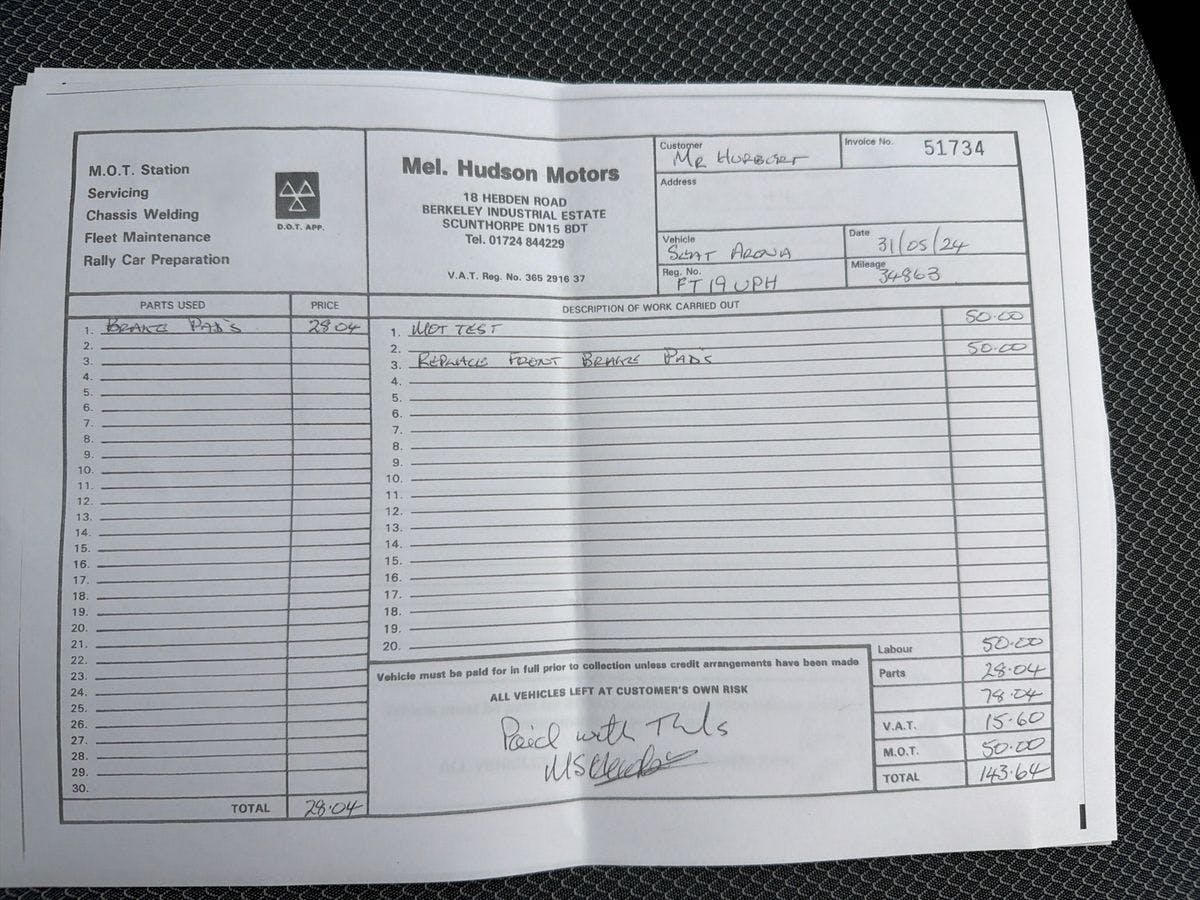 M.O.T. Station
Servicing
Chassis Welding
Fleet Maintenance
Rally Car Preparation
D.O.T. APP.
Mel. Hudson Motors
18 HEBDEN ROAD
BERKELEY INDUSTRIAL ESTATE
SCUNTHORPE DN15 8DT
Tel. 01724 844229
V.A.T. Reg. No. 365 2916 37
Customer
MR
Invoice No. 51734
Address
Vehicle
SEAT ARONA
Date
31/05/24
Reg. No.
FT19 UPH
Mileage
34863
PARTS USED PRICE
1. BRAKE PAD'S 28.04
2.
3.
4.
5.
6.
7.
8.
9.
10.
11.
12.
13.
14.
15.
16.
17.
18.
19.
20.
21.
22.
23.
24.
25.
26.
27.
28.
29.
30.
TOTAL 28.04
DESCRIPTION OF WORK CARRIED OUT
1. MOT TEST 50.00
2.
3. REPLACE FRONT BRAKE PAD'S 50.00
4.
5.
6.
7.
8.
9.
10.
11.
12.
13.
14.
15.
16.
17.
18.
19.
20.
Vehicle must be paid for in full prior to collection unless credit arrangements have been made
ALL VEHICLES LEFT AT CUSTOMER'S OWN RISK
Paid with
Labour 50.00
Parts 28.04
78.04
V.A.T. 15.60
M.O.T. 50.00
TOTAL 143.64